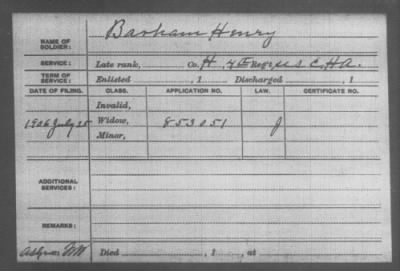 Barham Henry
NAME OF
SOLDIER:
SERVICE: Late rank, Co. H, 4 Reg't U.S. C.H.A.
TERM OF
SERVICE: Enlisted , 1 Discharged , 1
DATE OF FILING. CLASS. APPLICATION NO. LAW. CERTIFICATE NO.
Invalid,
1906 July 25 Widow, 853051 J
Minor,
ADDITIONAL
SERVICES:
REMARKS:
Died , 1 , at